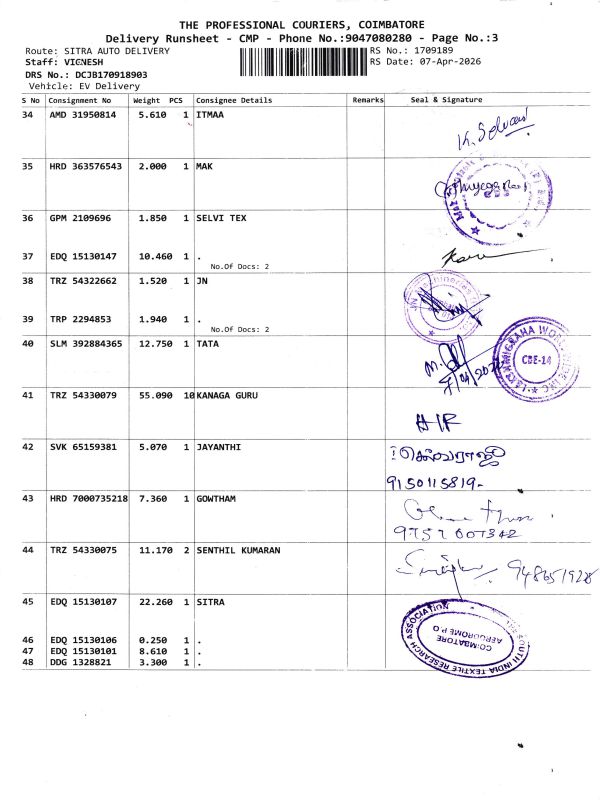 THE PROFESSIONAL COURIERS, COIMBATORE
Delivery Runsheet - CMP - Phone No.:9047080280 - Page No.:3
Route: SITRA AUTO DELIVERY
RS No.: 1709189
Staff: VIGNESH
RS Date: 07-Apr-2026
DRS No.: DCJB170918903
Vehicle: EV Delivery
S No Consignment No Weight PCS Consignee Details Remarks Seal & Signature
34 AMD 31950814 5.610 1 ITMAA
K. Selvan
35 HRD 363576543 2.000 1 MAK
36 GPM 2109696 1.850 1 SELVI TEX
37 EDQ 15130147 10.460 1 .
No.Of Docs: 2
38 TRZ 54322662 1.520 1 JN
39 TRP 2294853 1.940 1 .
No.Of Docs: 2
40 SLM 392884365 12.750 1 TATA
CBE-14
41 TRZ 54330079 55.090 10 KANAGA GURU
42 SVK 65159381 5.070 1 JAYANTHI
9150115819-
43 HRD 7000735218 7.360 1 GOWTHAM
9757 607342
44 TRZ 54330075 11.170 2 SENTHIL KUMARAN
45 EDQ 15130107 22.260 1 SITRA
THE SOUTH INDIA TEXTILE RESEARCH ASSOCIATION
COIMBATORE
AERODROME P O
46 EDQ 15130106 0.250 1 .
47 EDQ 15130101 8.610 1 .
48 DDG 1328821 3.300 1 .